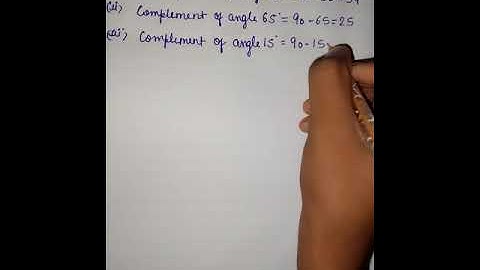 (ii) Complement of angle 65° = 90 - 65 = 25
(iii) Complement of angle 15° = 90 - 15